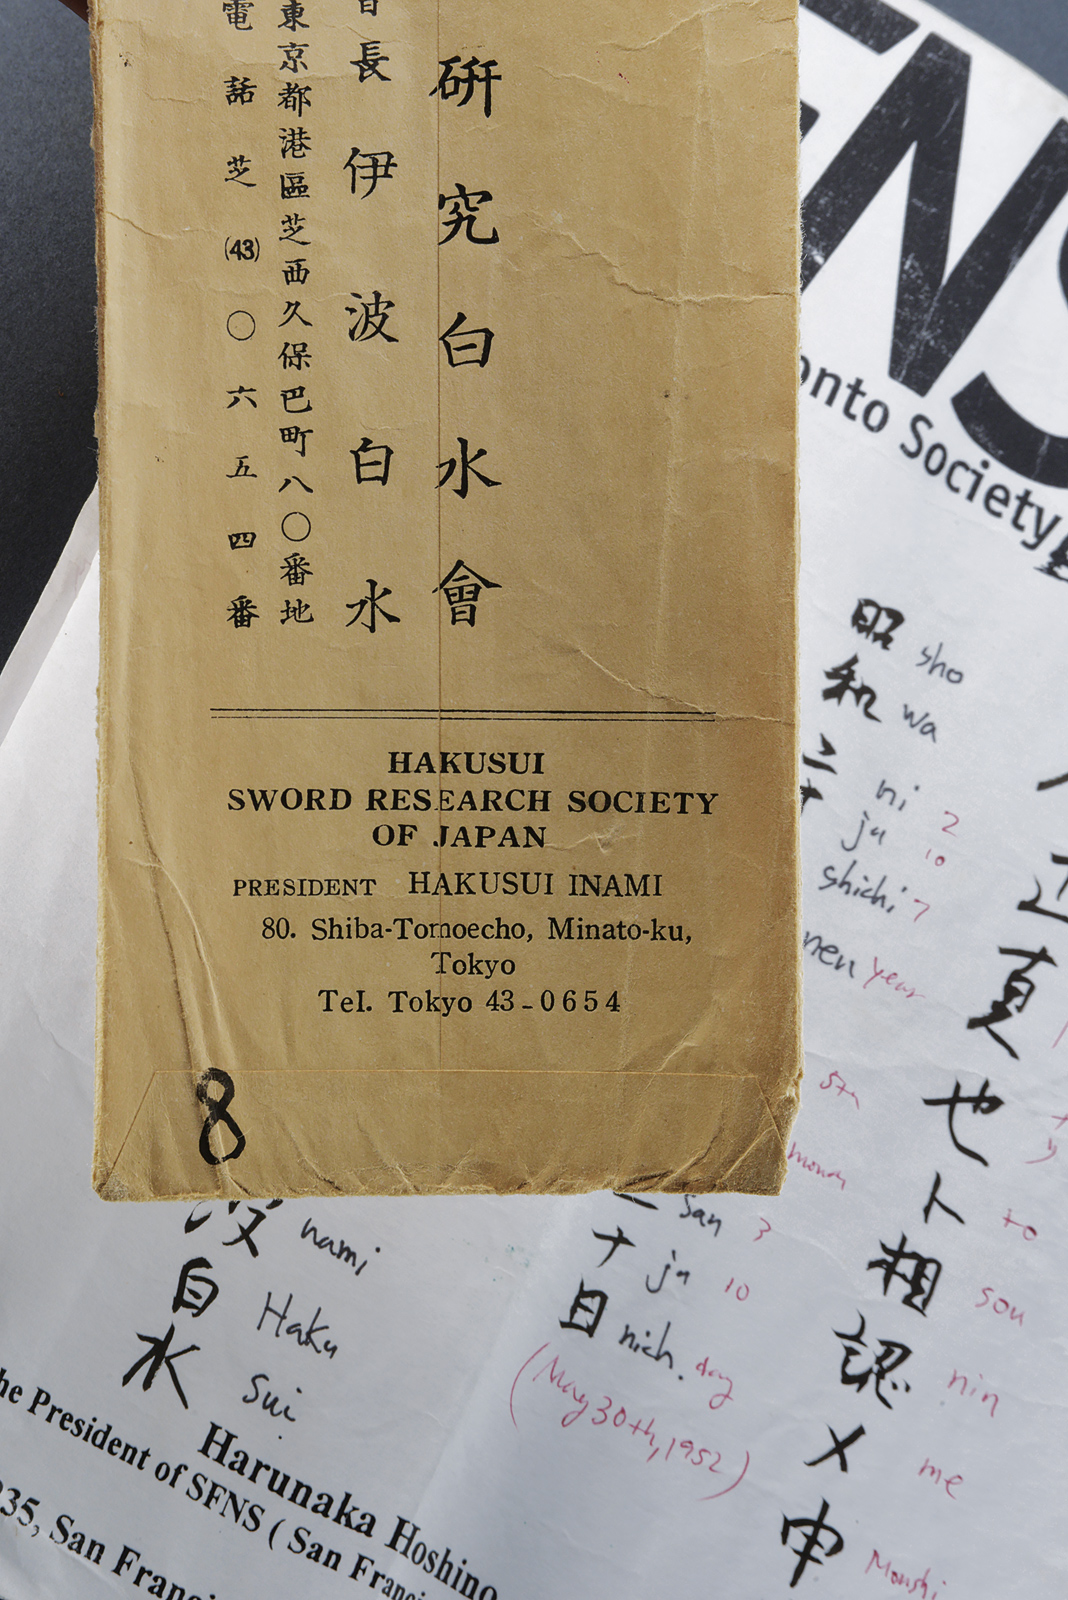 研究白水會
長 伊波白水
東京都港區芝西久保巴町八〇番地
電話芝(43)〇六五四番
HAKUSUI
SWORD RESEARCH SOCIETY
OF JAPAN
PRESIDENT HAKUSUI INAMI
80. Shiba-Tomoecho, Minato-ku,
Tokyo
Tel. Tokyo 43-0654
8
NS
onto Society
昭 sho
和 wa
二 ni 2
ju 10
shichi 7
nen year
5th
month
san 3
十 ju 10
日 nich. day
(May 30th, 1952)
正
真
也
ト to
相 sou
認 nin
メ me
申 Moushi
波 nami
白 Haku
水 Sui
Harunaka Hoshino
he President of SFNS ( San Franci
35, San Franci